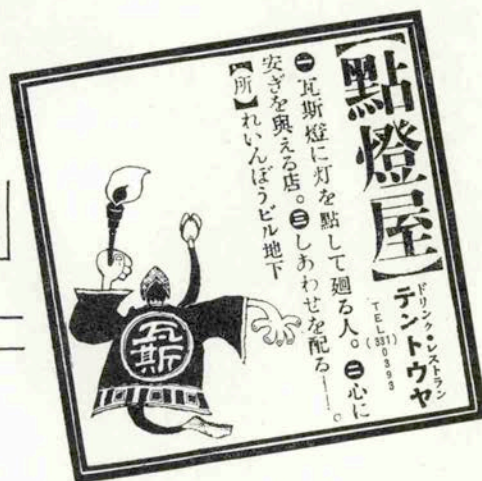 【點燈屋】
ドリンク・レストラン
テントウヤ
TEL(331)0393
㊀瓦斯燈に灯を點して廻る人。㊁心に
安ぎを與える店。㊂しあわせを配る——。
【所】れいんぼうビル地下
瓦斯